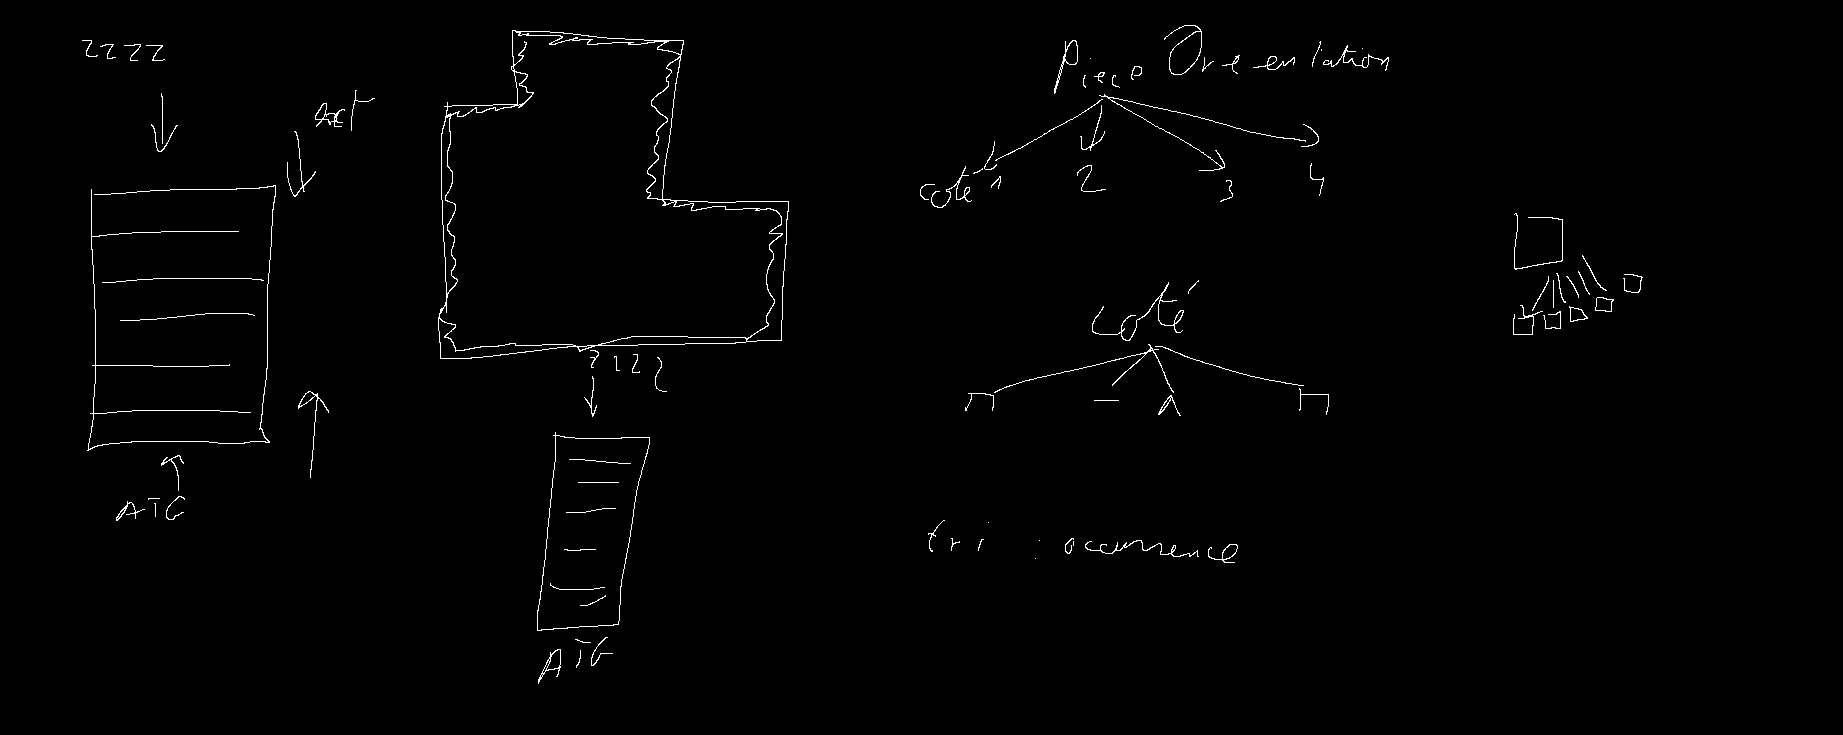 zzzz
ATG
zzzz
ATG
Piece Orientation
coté 1 2 3 4
coté
tri : occurrence